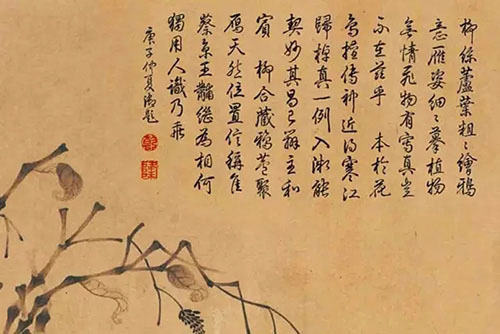 柳絲蘆葉粗〻繪鴉
意雁姿細〻摹植物
無情飛物有寫真豈
不在茲乎 本於花
鳥擅傳神近得寒江
歸棹真一例入能
契妙其昌已辨主和
賓柳合藏鴉葦聚
雁天然位置信稱佳
蔡京王黼繼為相何
獨用人識乃乖
庚子仲夏御題